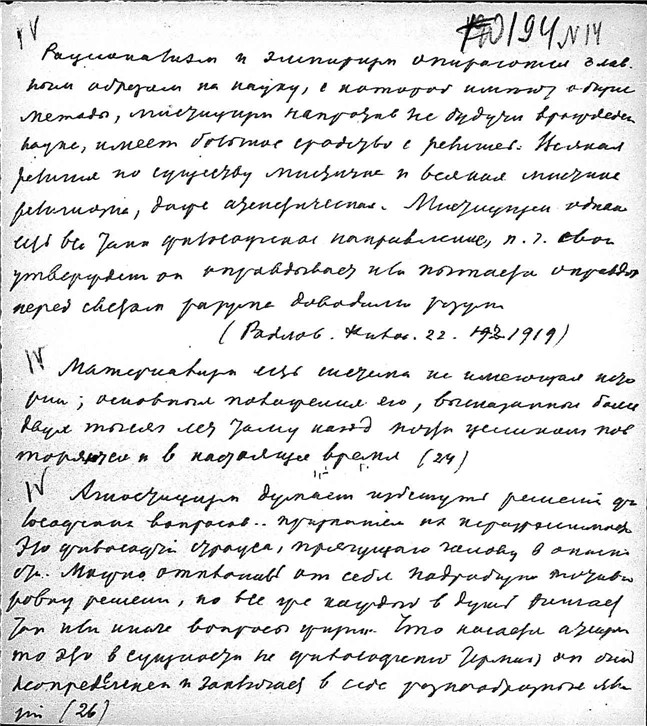 IV
194 N 14
Рационализм и эмпиризм опираются глав
ным образом на науку, с которой имеют общие
методы, мистицизм напротив не будучи враждебен
науке, имеет большое сродство с религией. Всякая
религия по существу мистична и всякая мистика
религиозна, даже атеистическая. Мистицизм однако
есть все таки философское направление, п. ч. свои
утверждения он оправдывает или пытается оправдать
перед светом разума доводами разума
(Радлов. Филос. 22. 1919)
IV
Материализм есть система не имеющая исто
рии; основные положения его, высказанные более
двух тысяч лет тому назад почти целиком пов
торяются и в настоящее время (24)
IV
Агностицизм думает избегнуть решения фи
лософских вопросов.. признанием их неразрешимости
Это философия страуса, прячущего голову в опасно
сти. Можно отклонить от себя подробную
решения, но все же каждый в душе решает
так или иначе вопросы жизни. Что касается
то это в сущности не философский термин, он
неопределенен и заключает в себе разнообразные
(26)